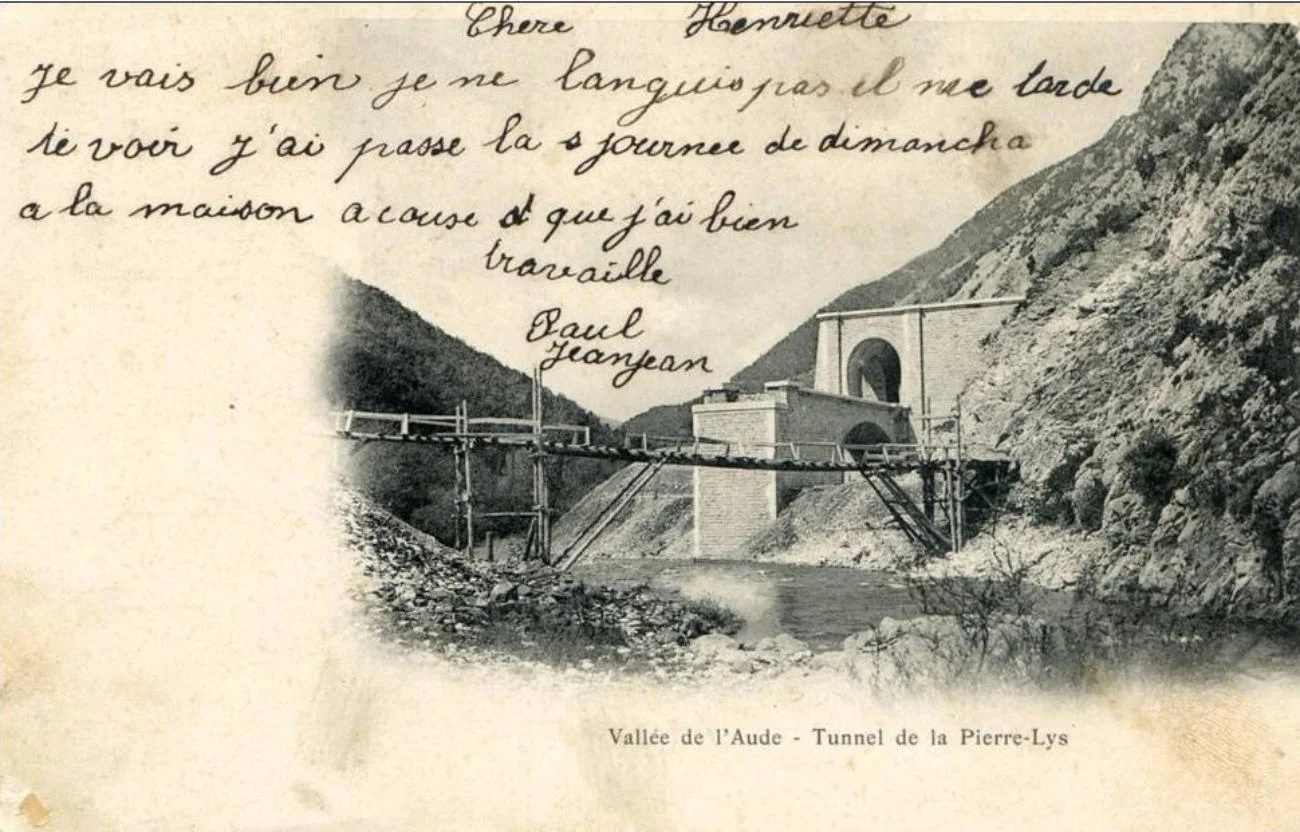 Chere Henriette
Je vais bien je ne languis pas il me tarde
te voir J'ai passe la s journee de dimancha
a la maison a couse d que j'ai bien
travaille
Paul
Jeanjean
Vallée de l'Aude - Tunnel de la Pierre-Lys